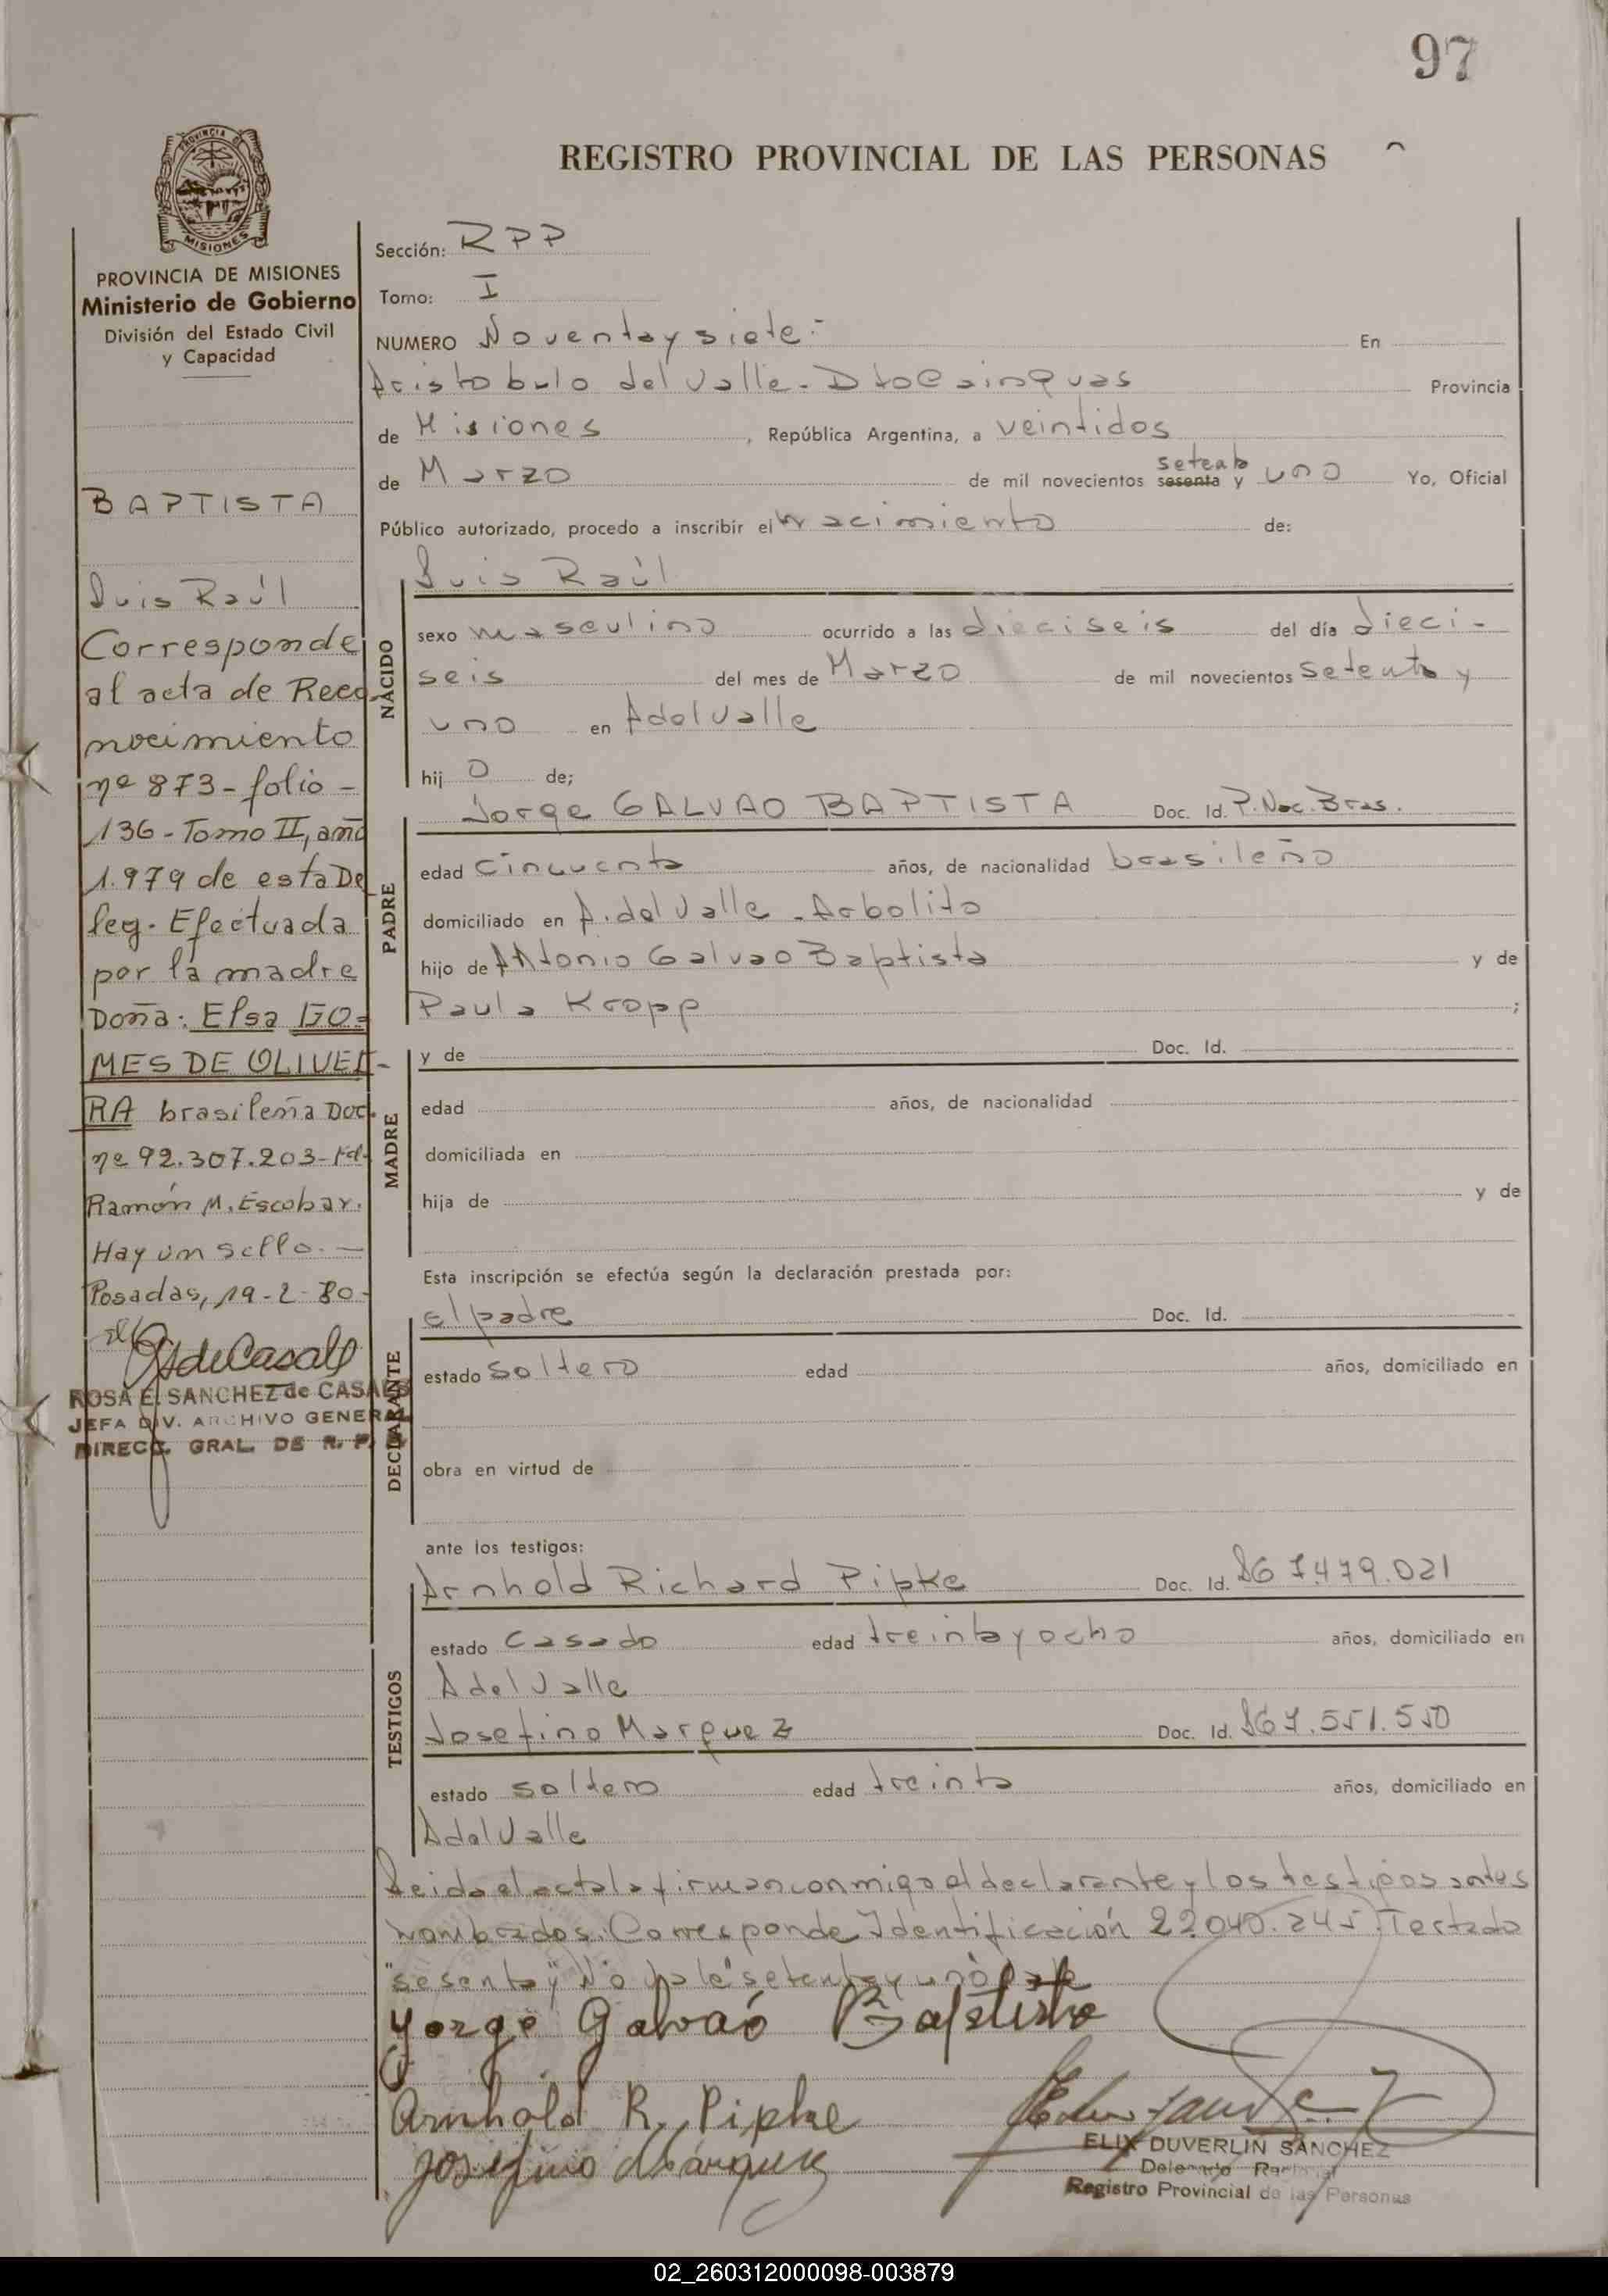 97
REGISTRO PROVINCIAL DE LAS PERSONAS
PROVINCIA DE
MISIONES
PROVINCIA DE MISIONES
Ministerio de Gobierno
División del Estado Civil
y Capacidad
BAPTISTA
Luis Raúl
Corresponde
al acta de Reco
nocimiento
nº 873 - folio -
136 - Tomo II, año
1.979 de esta De
leg. Efectuada
por la madre
Doña: Elsa GO-
MES DE OLIVEI-
RA brasileña Doc.
nº 92.307.203 - Fd.
Ramón M. Escobar.
Hay un sello. —
Posadas, 19-2-80-
ROSA E. SANCHEZ de CASALS
JEFA DIV. ARCHIVO GENERAL
DIRECC. GRAL. DE R. P.
Sección: RPP
Tomo: I
NUMERO Noventa y siete.- En
Aristobulo del Valle - Dto Cainguas Provincia
de Misiones, República Argentina, a veintidos
de Marzo de mil novecientos sesenta setenta y uno Yo, Oficial
Público autorizado, procedo a inscribir el nacimiento de:
NACIDO
Luis Raúl
sexo masculino ocurrido a las dieciseis del día dieci-
seis del mes de Marzo de mil novecientos setenta y
uno en A del Valle
hij o de;
PADRE
Jorge GALVAO BAPTISTA Doc. Id. P. Noc. Bras.
edad cincuenta años, de nacionalidad brasileño
domiciliado en A. del Valle - Arbolito
hijo de Antonio Galvao Baptista y de
Paula Kropp ;
MADRE
y de Doc. Id.
edad años, de nacionalidad
domiciliada en
hija de y de
Esta inscripción se efectúa según la declaración prestada por:
DECLARANTE
el padre Doc. Id.
estado soltero edad años, domiciliado en
obra en virtud de
ante los testigos:
TESTIGOS
Arnhold Richard Pipke Doc. Id. 7.479.021
estado casado edad treinta y ocho años, domiciliado en
A del Valle
Josefino Marquez Doc. Id. 7.551.550
estado soltero edad treinta años, domiciliado en
A del Valle
Leida el acta la firman conmigo el declarante y los testigos antes
nombrados. Corresponde Identificación 22.040.245. Testado
"sesenta" No vale "setenta y uno"
Jorge Galvaó Baptista
Arnhold R. Pipke
Josefino Márquez
ELIX DUVERLIN SANCHEZ
Delegado
Registro Provincial de las Personas
02_260312000098-003879